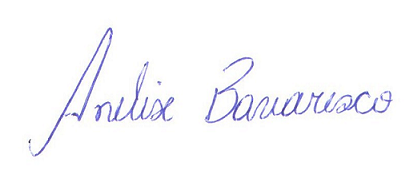 Anelise Bavaresco